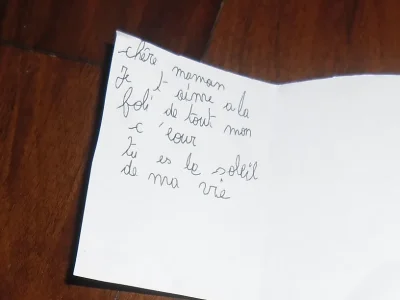 chère maman
Je t'aime a la
foli de tout mon
c'eour
tu es le soleil
de ma vie